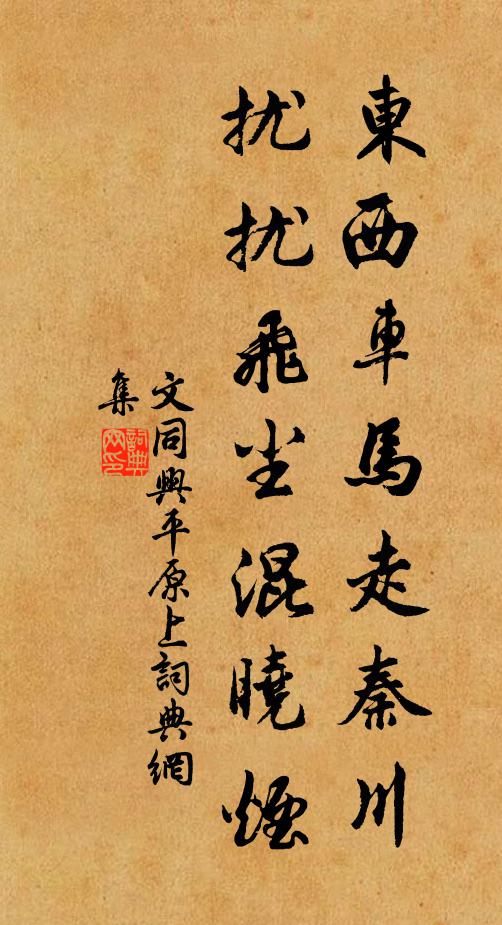 東西車馬走秦川
扰扰飛尘混曉煙
文同興平原上詞典網
集
詞典
网印